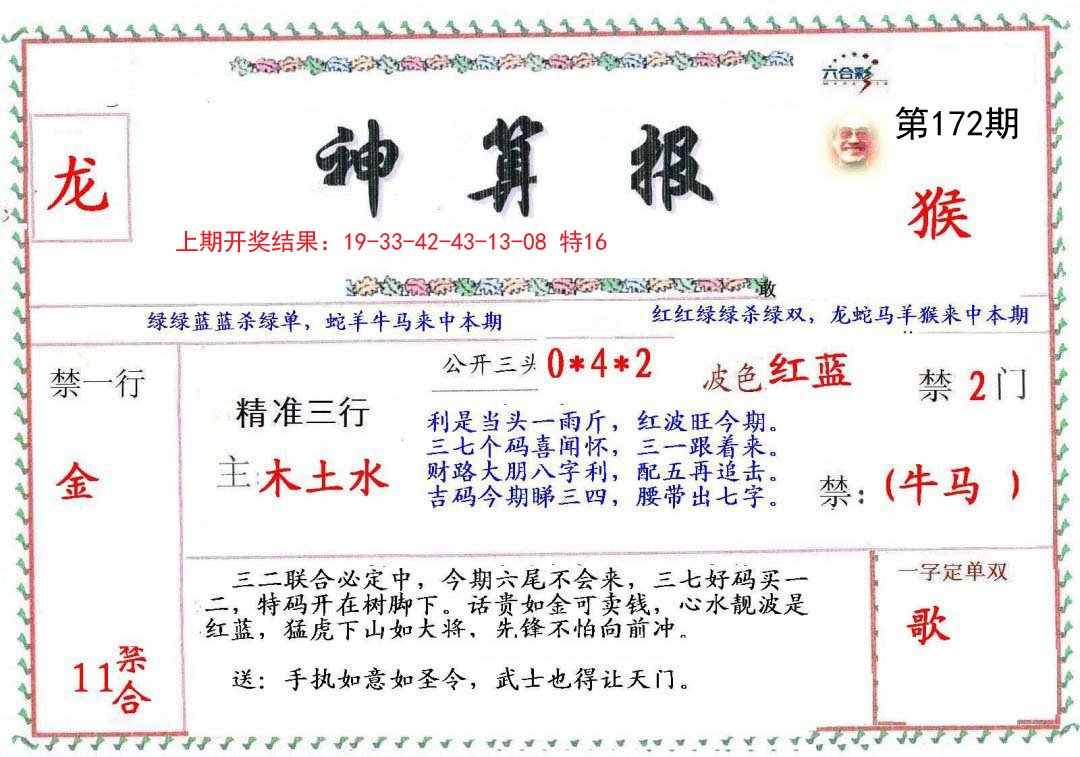 六合彩
第172期
龙
神算报
猴
上期开奖结果：19-33-42-43-13-08 特16
敢
绿绿蓝蓝杀绿单，蛇羊牛马来中本期
红红绿绿杀绿双，龙蛇马羊猴来中本期
禁一行
金
11禁合
精准三行
主:木土水
公开三头 0*4*2
波色 红蓝
利是当头一雨斤，红波旺今期。
三七个码喜闻怀，三一跟着来。
财路大朋八字利，配五再追击。
吉码今期睇三四，腰带出七字。
禁2门
禁：(牛马 )
三二联合必定中，今期六尾不会来，三七好码买一
二，特码开在树脚下。话贵如金可卖钱，心水靓波是
红蓝，猛虎下山如大将，先锋不怕向前冲。
送：手执如意如圣令，武士也得让天门。
一字定单双
歌